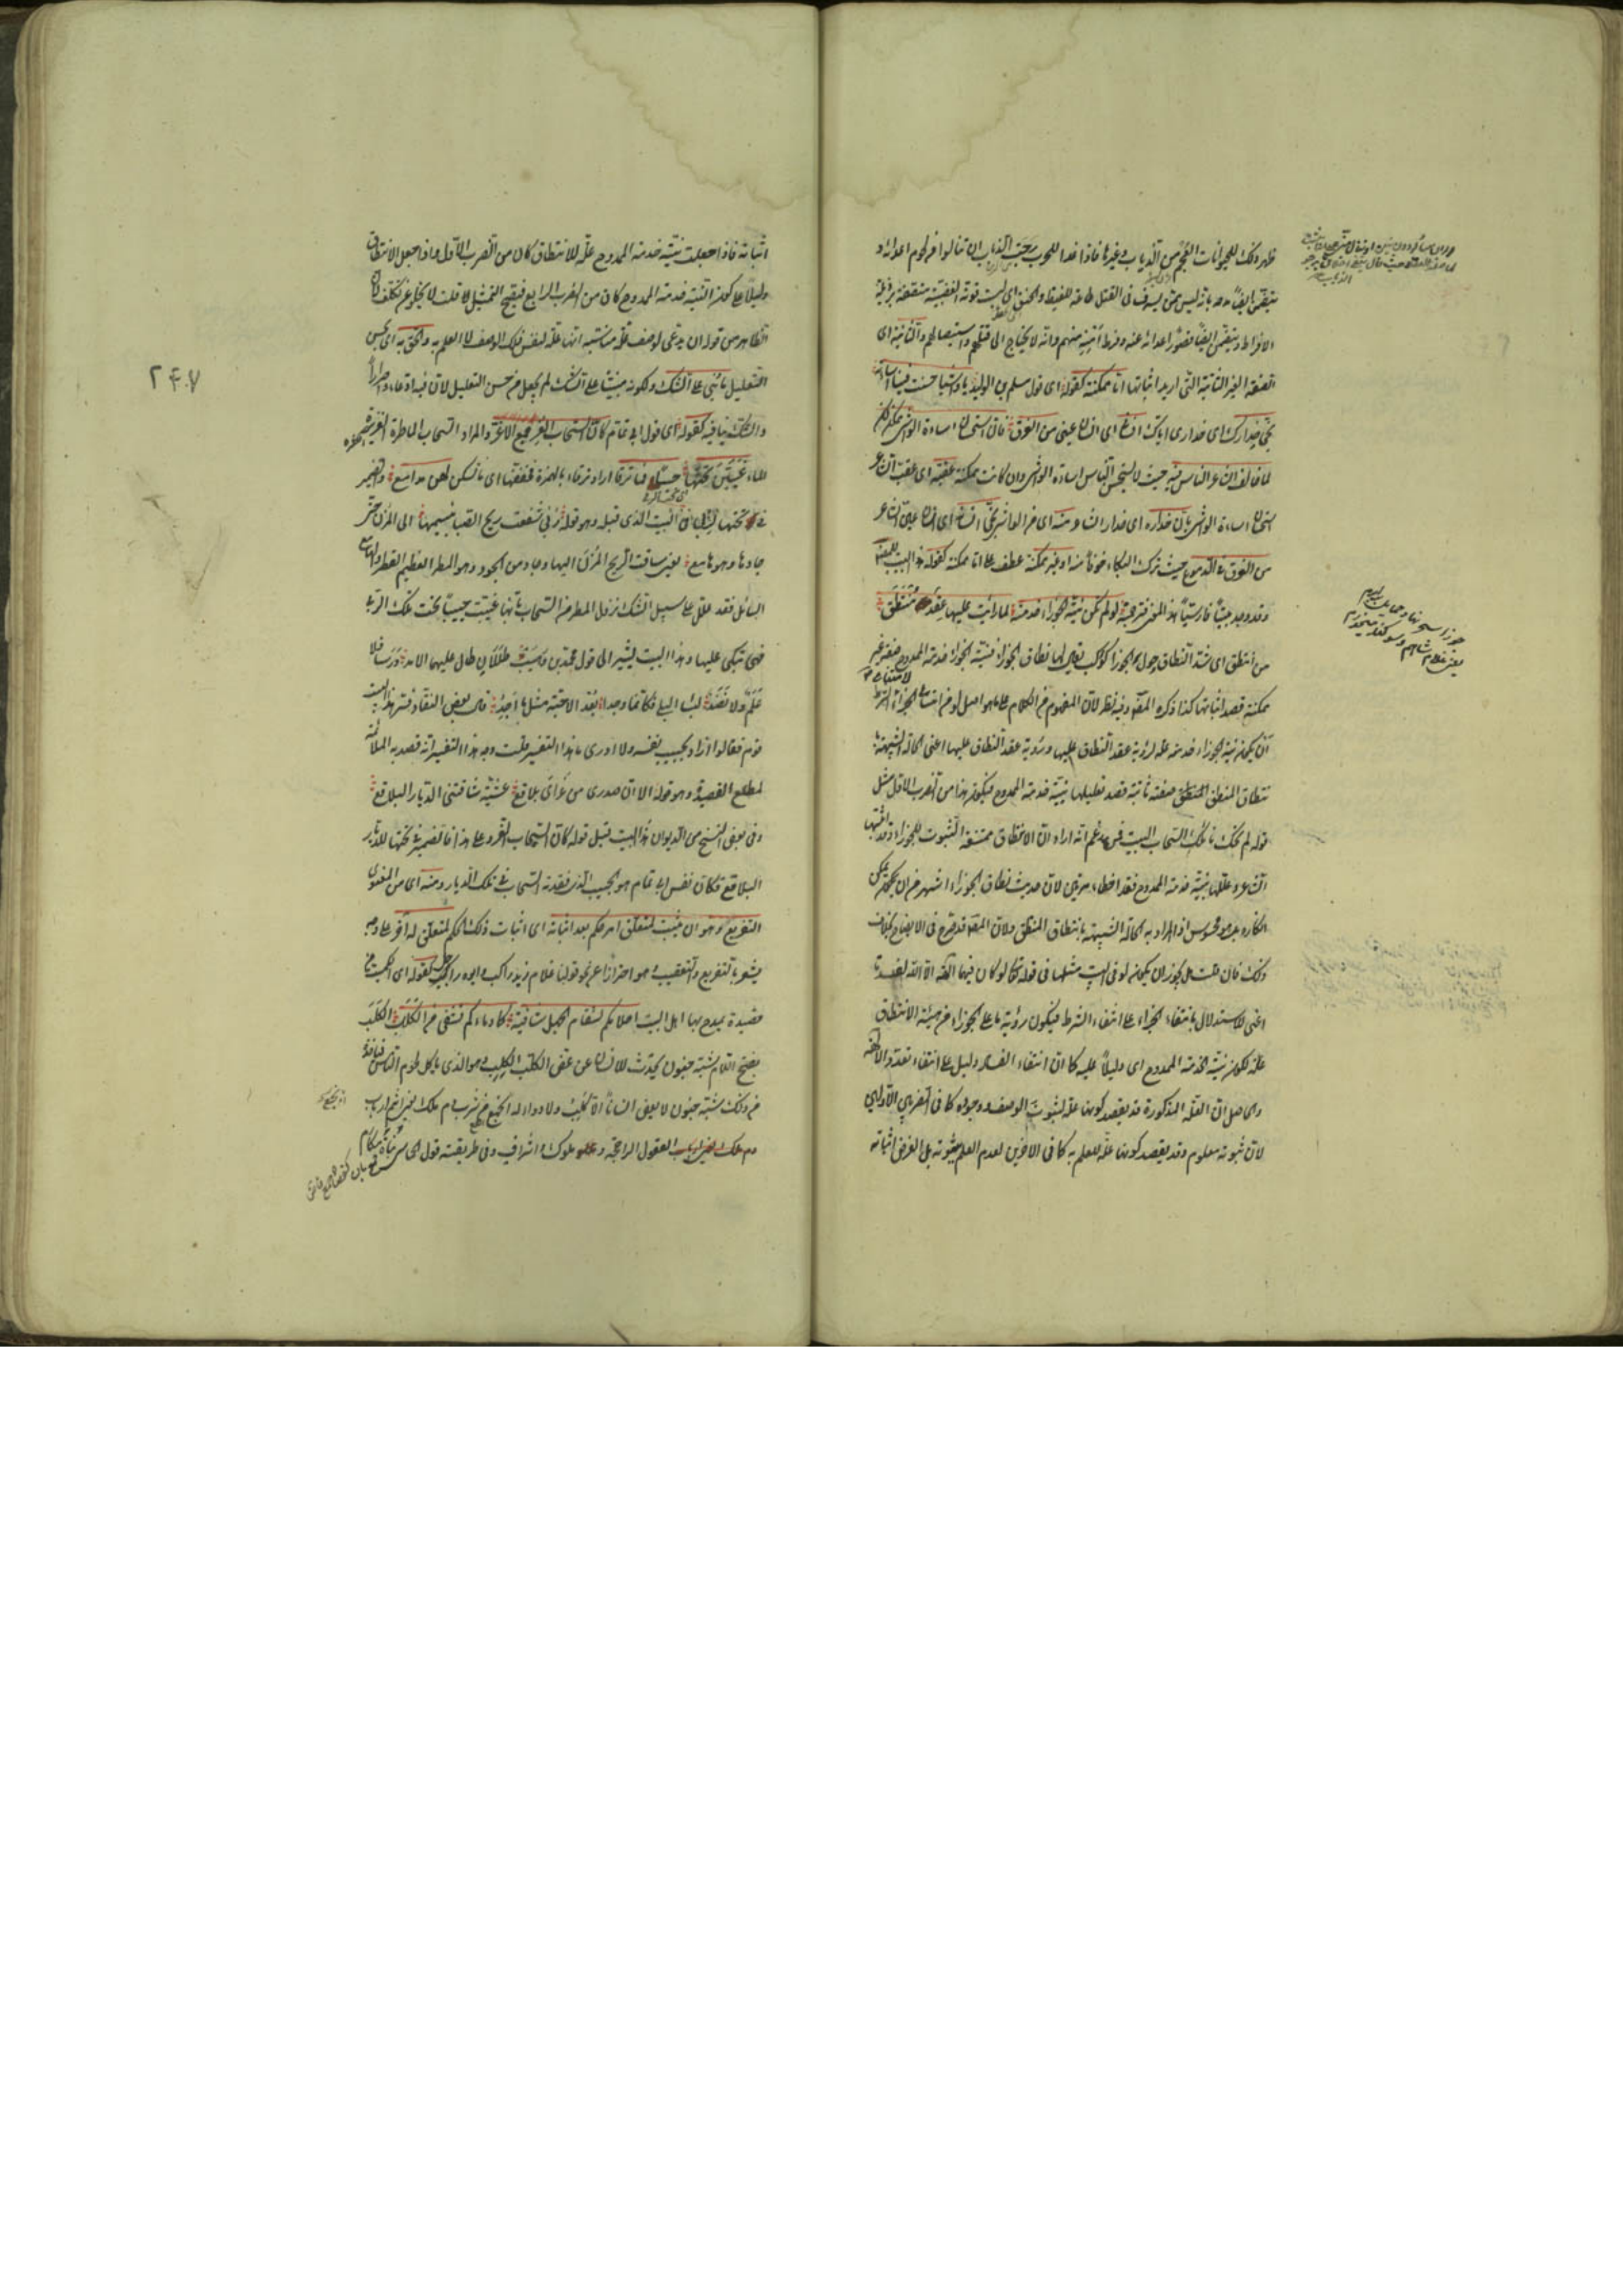 ظهر ذلك للحيوانات العجم من الذياب وغيرها فاذا غدا للحرب رجت الذياب ان تنالوا من لحوم اعدائه و
يتضمن ايضا مدحه بانه ليس ممن يسرف فى القتل طاعة للغيظ والحنق اى ليست قوته الغضبية متصفة برذيلة
الافراط ويتضمن ايضا قصور اعدائه عنه وفرط امنه منهم وانه لا يحتاج الى قتلهم واستيصالهم والثانية اى
الصفة الغير الثابتة التى اريد اثباتها اما ممكنة كقوله اى قول مسلم بن الوليد يا واشيا حسنت فينا اساءته
نجى حذارك اى حذارى اياك انسانى اى انسان عينى من الغرق فان استحسان اساءة الواشى ممكن لكن
لما خالف الشاعر الناس فيه حيث لا يستحسن الناس اساءة الواشى وان كانت ممكنة عقبه اى عقب الشاعر
استحسان اساءة الواشى بان حذاره اى حذار الشاعر منه اى من الواشى نجى انسانه اى انسان عين الشاعر
من الغرق فى الدموع حيث ترك البكاء خوفا منه او غير ممكنة عطف على اما ممكنة كقوله هذا البيت للمصنف
وقد وجد بيتا فارسيا فى هذا المعنى فترجمه لو لم تكن نية الجوزاء خدمته لما رايت عليها عقد منتطق
من انتطق اى شد النطاق وحول الجوزا كواكب يقال لها نطاق الجوزاء فنية الجوزاء خدمة الممدوح صفة غير
ممكنة قصد اثباتها كذا ذكره المصنف وفيه نظر لان المفهوم من الكلام على ما هو اصل لو من امتناع الجزاء لامتناع الشرط
ان يكون نية الجوزاء خدمته علة لرؤية عقد النطاق عليها ورؤية عقد النطاق عليها اعنى الحالة الشبيهة با
نتطاق المنتطق صفة ثابتة قصد تعليلها بنية خدمة الممدوح فيكون هذا من الضرب الاول مثل
قوله لم يحك نائلك السحاب البيت فمن زعم انه اراد ان الانتطاق ممتنعة الثبوت للجوزاء وقد اثبتها
الشاعر وعللها بنية خدمة الممدوح فقد اخطاء مرتين لان حديث نطاق الجوزاء اشهر من ان يمكن
انكاره بل هو محسوس اذ المراد به الحالة الشبيهة بانتطاق المنتطق ولان المصنف قد صرح فى الايضاح بخلاف
ذلك فان قلت هل يجوز ان يكون لو فى البيت مثلها فى قوله تعالى لو كان فيهما آلهة الا الله لفسدتا
اعنى للاستدلال بانتفاء الجزاء على انتفاء الشرط فيكون رؤية ما على الجوزاء من هيئة الانتطاق
علة لكون نية خدمة الممدوح اى دليلا عليه كما ان انتفاء الفساد دليل على انتفاء تعدد الآلهة
والحاصل ان العلة المذكورة قد يقصد كونها علة لثبوت الوصف ووجوده كما فى الضربين الاولين
لان ثبوته معلوم وقد يقصد كونها علة للعلم به كما فى الاخرين لعدم العلم بثبوته بل الغرض اثباته
اثباته فاذا جعلت نية خدمة الممدوح علة للانتطاق كان من الضرب الاول واذا جعل الانتطاق
دليلا على كون النية خدمة الممدوح كان من الضرب الرابع فيصح التمثيل لا قلت لا يخلو عن تكلف لان
الظاهر من قوله ان يدعى لوصف علة مناسبة انها علة لنفس ذلك الوصف لا العلم به والحق به اى بحسن
التعليل ما بنى على الشك ولكونه مبنيا على الشك لم يجعل من حسن التعليل لان فيه ادعاء واصرارا
والشك ينافيه كقوله اى قول ابى تمام كان السحاب الغر جمع الاغر والمراد السحاب الماطرة الغزيرة
الماء غيبن تحتها حبيبا فما ترقا اراد ترقاء بالهمزة فخففها اى ما تسكن لهن مدامع والضمير
فى تحتها للربى فى البيت الذى قبله وهو قوله ربى شفعت ريح الصبا بنسيمها الى المزن حتى
جادها وهو هامع يعنى ساقت الريح المزن اليها وجاد من الجود وهو المطر العظيم القطر والهامع
السائل فقد علل على سبيل الشك نزول المطر من السحاب بانها غيبت حبيبا تحت تلك الربى
فهى تبكى عليها وهذا البيت يشير الى قول محمد بن وهيب طللان طال عليهما الامد درسا فلا
علم ولا نضد لبسا البلى فكانما وجدا بعد الاحبة مثل ما اجد قال بعض النقاد فسر هذا البيت
قوم فقالوا اراد بحبيب نفسه ولا ادرى ما هذا التفسير قلت وجه هذا التفسير انه قصد به الملائمة
لمطلع القصيدة وهو قوله الا ان صدرى من عزائى بلاقع عشية شاقتنى الديار البلاقع
وفى بعض النسخ من الديوان هذا البيت قبل قوله كان السحاب الغر وعلى هذا فالضمير فى تحتها للديار
البلاقع فكان نفس ابى تمام هو الحبيب الذى فقدته السحاب فى تلك الديار ومنه اى من المعنوى
التفريع وهو ان يثبت لمتعلق امر حكم بعد اثباته اى اثبات ذلك الحكم لمتعلق له آخر على وجه
يشعر بالتفريع والتعقيب هو احتراز عن نحو قولنا غلام زيد راكب وابوه راكب كقوله اى الكميت من
قصيدة يمدح بها اهل البيت احلامكم لسقام الجهل شافية كما دماءكم تشفى من الكلب الكلب
بفتح اللام شبه جنون يحدث للانسان عن عض الكلب الكلب وهو الذى ياكل لحوم الناس فياخذه
من ذلك شبه جنون لا يعض انسانا الا كلب ولا دواء له انجع من شرب دم ملك يعنى انتم ارباب
العقول الراجحة وملوك واشراف وفى طريقته قول الحماسى بناة مكارم